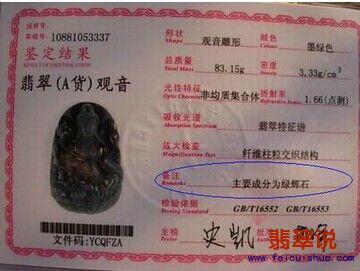 实验号: 10881053337
鉴定结果
RESULT OF IDENTIFICATION
翡翠(A货)观音
文件编码: YCQFZA
形状 观音雕形 颜色 墨绿色
Shape
总质量 83.15g 密度 3.33g/cm³
光性特征 非均质集合体 折射率 1.66(点测)
Optic Character
吸收光谱 翡翠特征谱
Absorption Spectrum
放大检查 纤维柱粒交织结构
备注 主要成分为绿辉石
Remarks
检验依据 GB/T16552 GB/T16553
Testing Standard
主检 史凯
翡翠说
www.feicuishuo.com